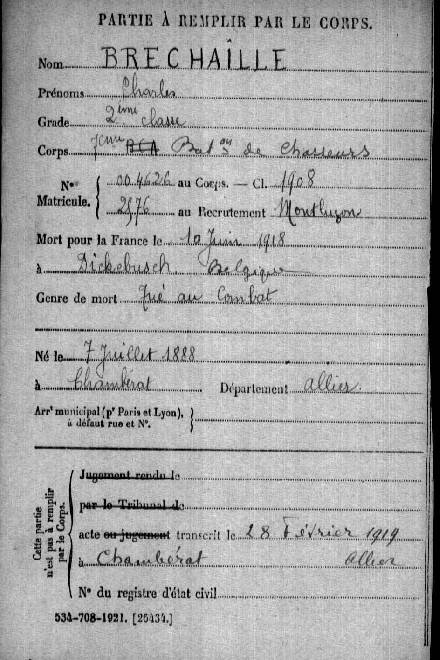 PARTIE À REMPLIR PAR LE CORPS.
Nom BRECHAÎLLE
Prénoms Charles
Grade 2ème classe
Corps 7ème BCA Baton de Chasseurs
Nº Matricule. 00.4626 au Corps. — Cl. 1908
2576 au Recrutement Montluçon
Mort pour la France le 10 Juin 1918
à Dickebusch Belgique
Genre de mort Tué au Combat
Né le 7 Juillet 1888
à Chambérat Département Allier
Arrt municipal (pr Paris et Lyon), à défaut rue et Nº.
Cette partie n'est pas à remplir par le Corps.
Jugement rendu le
par le Tribunal de
acte ou jugement transcrit le 28 Février 1919
à Chambérat Allier
Nº du registre d'état civil
534-708-1921. [25434.]